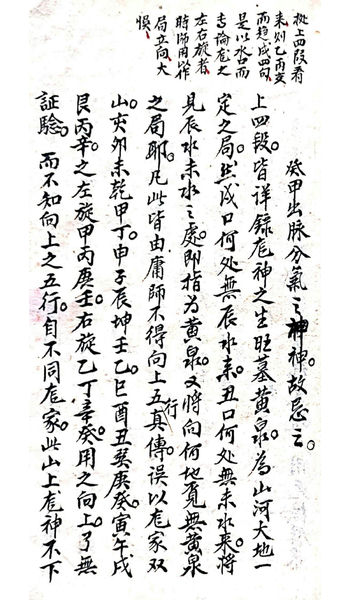 按上四段看
来则乙丙交
而趋戌四句
是以水口而
专論龙之
左右旋者
時師用以作
局立向大
悞
癸甲出脉分氣之神神故忌之。
上四段。皆详錄龙神之生旺墓黄泉。為山河大地一
定之局。然戌口何处無辰水来。丑口何处無未水来。将
見辰水未水之処。即指為黄泉。又将向何地覓無黄泉
之局耶。凡此皆由庸師不得向上五行真傳。误以龙家双
山。亥卯未乾甲丁。申子辰坤壬乙。巳酉丑巽庚癸。寅午戌
艮丙辛。之左旋甲丙庚壬。右旋乙丁辛癸。用之向上。了無
証驗。而不知向上之五行。自不同龙家。此山上龙神不下